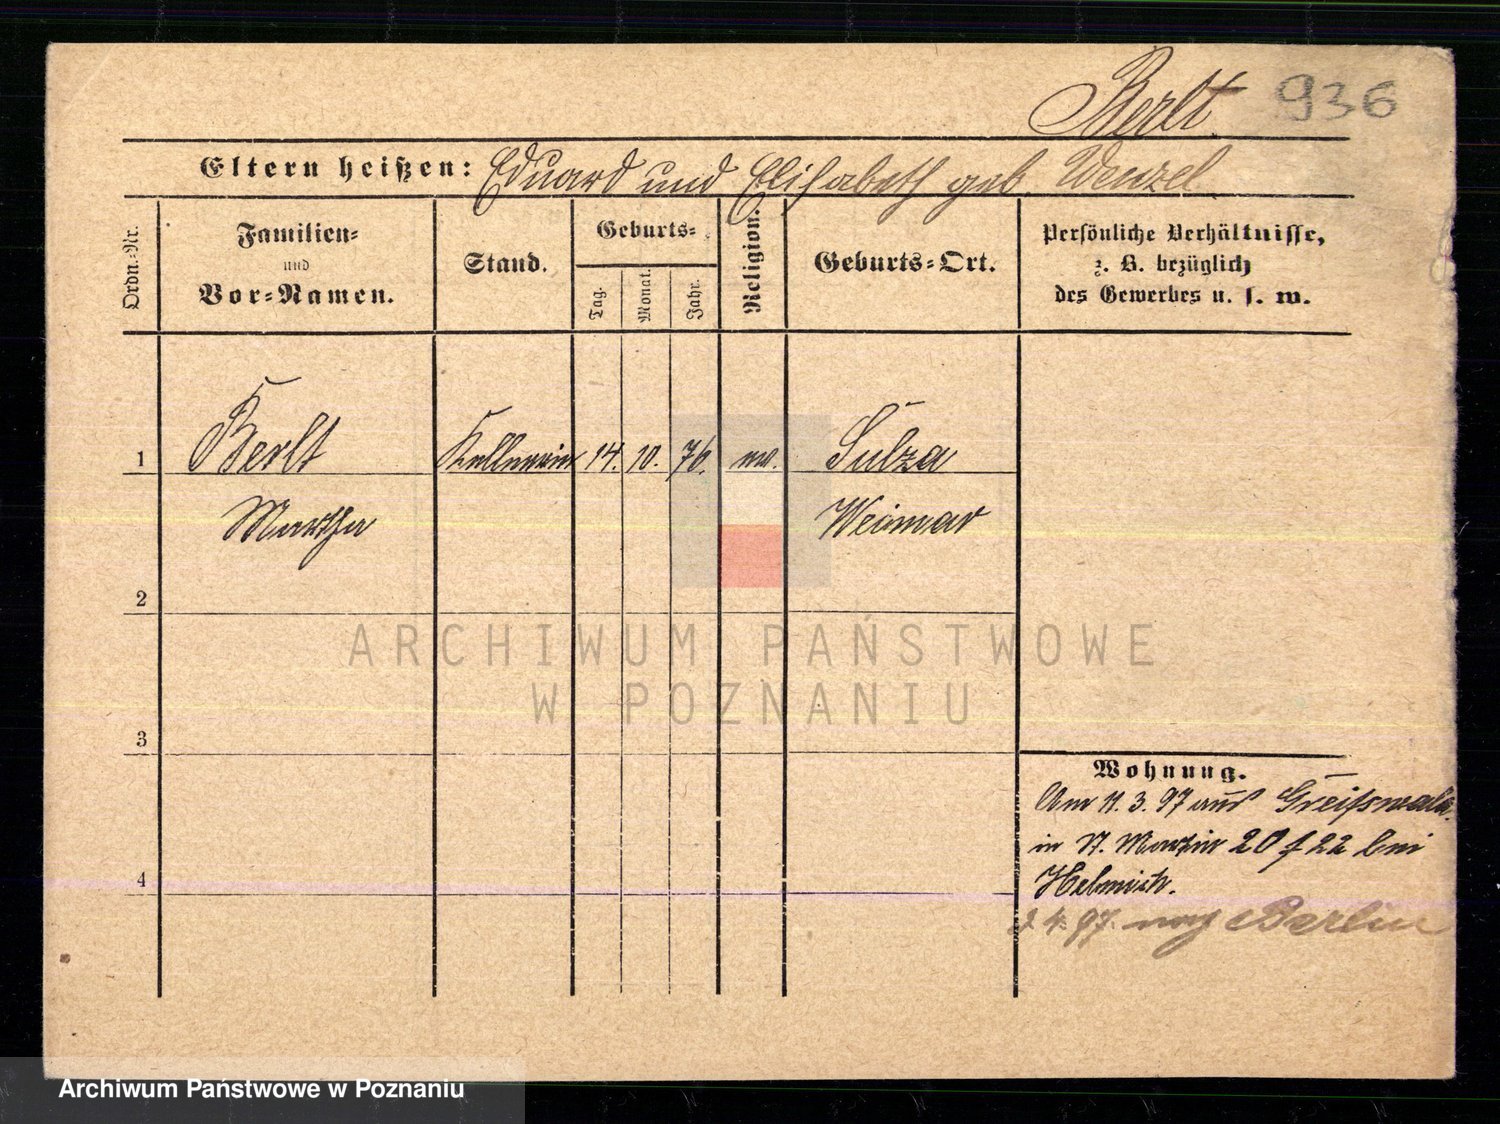 Berlt. 936
Eltern heißen: Eduard und Elisabeth geb. Wenzel
Ordn.-Nr.
Familien-
und
Vor-Namen.
Stand.
Geburts-
Tag.
Monat.
Jahr.
Religion.
Geburts-Ort.
Persönliche Verhältnisse,
z. B. bezüglich
des Gewerbes u. s. w.
1 Berlt Kellnerin 14. 10. 76. ev. Sulza
Martha Weimar
2
3
4
ARCHIWUM PAŃSTWOWE
W POZNANIU
Wohnung.
Am 11. 3. 97 aus Greifswald
in St. Martin 20 / 22 bei
Helmich.
2. 4. 97. nach Berlin
Archiwum Państwowe w Poznaniu